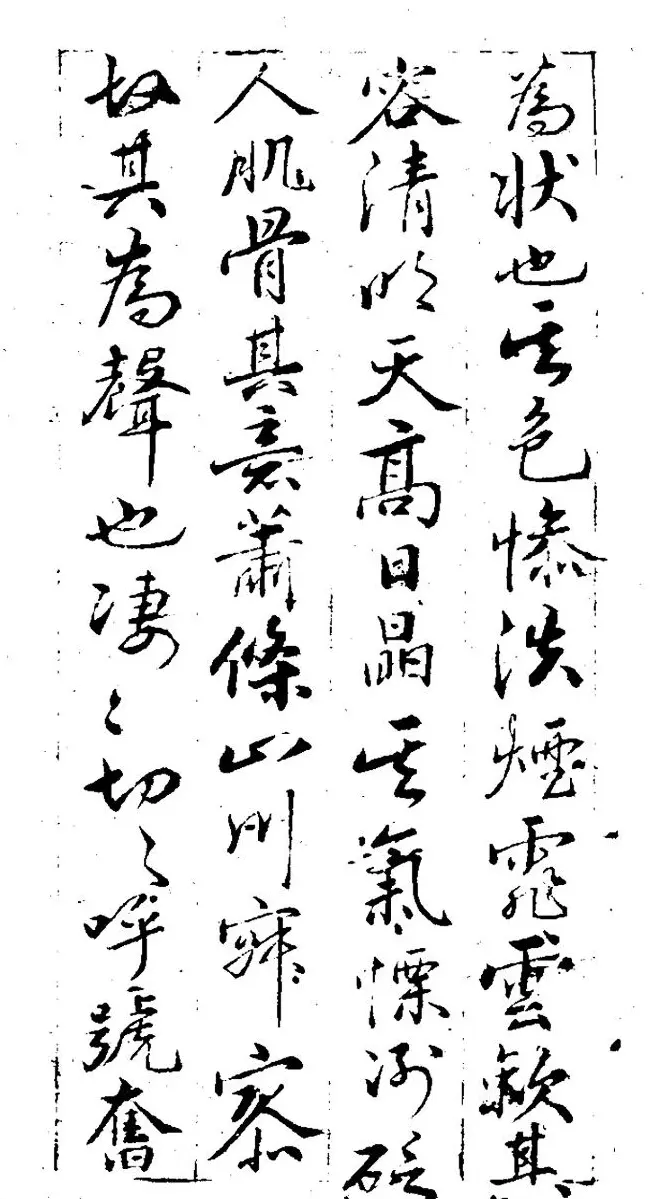 為狀也其色慘淡煙霏雲歛其
容清明天高日晶其氣慄冽砭
人肌骨其意蕭條山川寂寥
故其為聲也淒〻切〻呼號奮